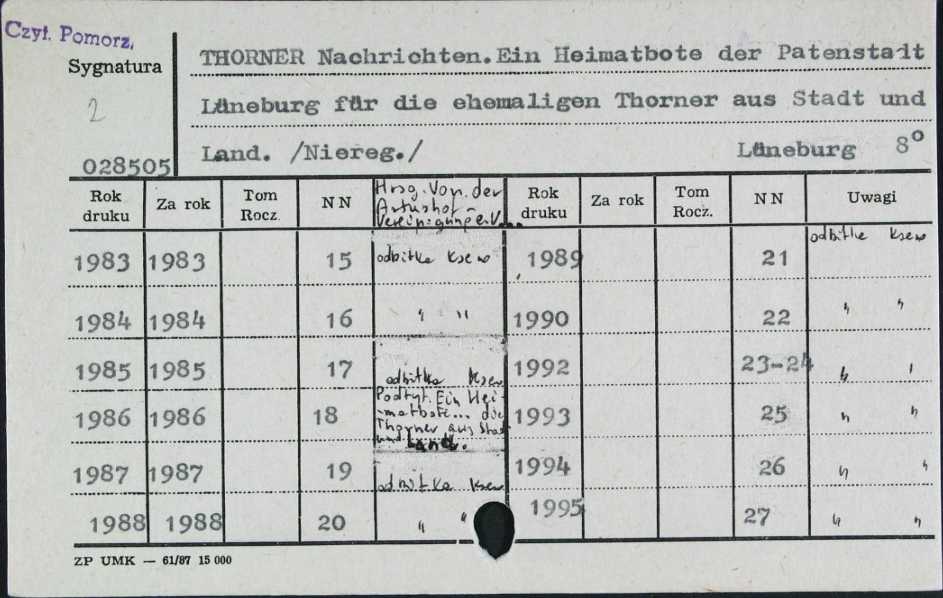 Czyt. Pomorz.
Sygnatura
2
028505
THORNER Nachrichten.Ein Heimatbote der Patenstadt
Lüneburg für die ehemaligen Thorner aus Stadt und
Land. /Niereg./ Lüneburg 8°
Rok druku Za rok Tom Rocz. NN Hrsg. Von der Artushof-Vereinigung e.V. Rok druku Za rok Tom Rocz. NN Uwagi
1983 1983 15 odbitka ksero 1989 21 odbitka ksero
1984 1984 16 " " 1990 22 " "
1985 1985 17 odbitka ksero 1992 23-24 " "
1986 1986 18 Podtyt. Ein Hei-matbote... die Thorner aus Stadt und Land. 1993 25 " "
1987 1987 19 odbitka ksero 1994 26 " "
1988 1988 20 " " 1995 27 " "
ZP UMK — 61/87 15 000